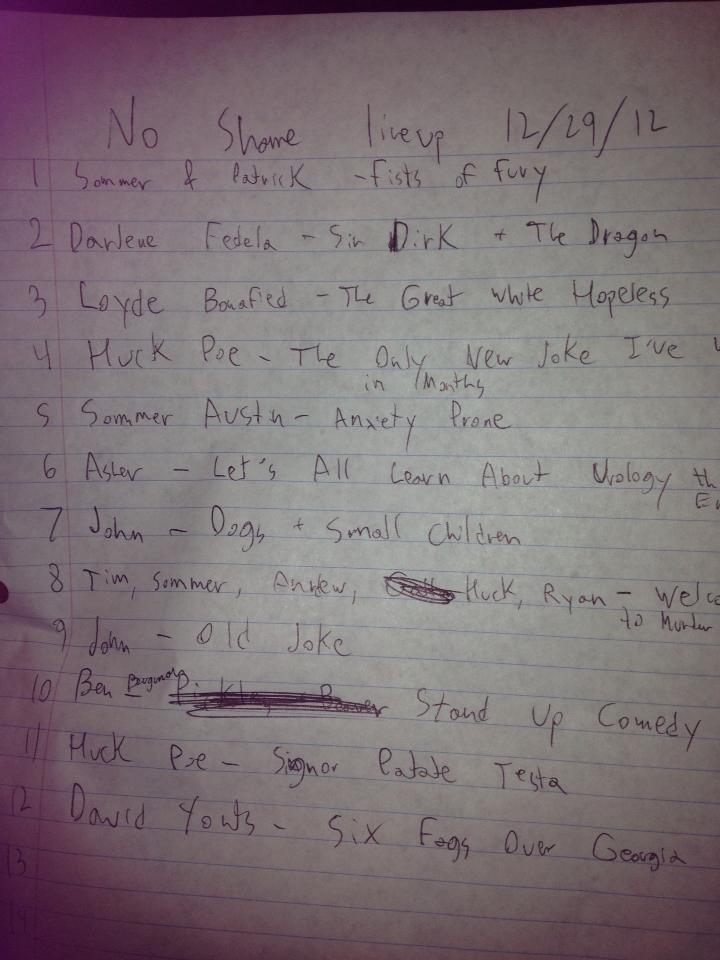 No Shame lineup 12/29/12
1 Sommer & Patrick - Fists of Fury
2 Darlene Fedela - Sir Dirk + The Dragon
3 Loyde Bonafied - The Great White Hopeless
4 Huck Poe - The Only New Joke I've
in Months
5 Sommer Austin - Anxiety Prone
6 Asher - Let's All Learn About Urology
7 John - Dogs + Small Children
8 Tim, Sommer, Andrew, Huck, Ryan -
to Murder
9 John - Old Joke
10 Ben Stand Up Comedy
11 Huck Poe - Signor Patate Testa
12 David Yonts - Six Fags Over Georgia
13
14